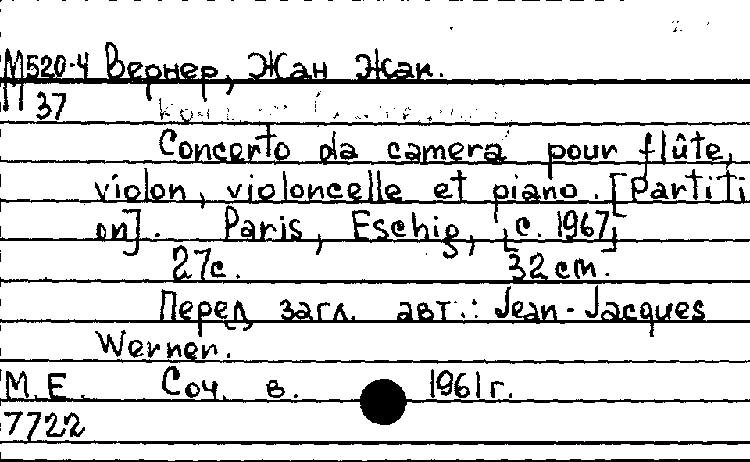 М520-4 Вернер, Жан Жак.
П 37
Concerto da camera pour flûte,
violon, violoncelle et piano. [Partiti
on]. Paris, Eschig, [c. 1967]
27с. 32 cm.
Перед загл. авт.: Jean-Jacques
Werner.
М.Е. Соч. в. 1961 г.
7722